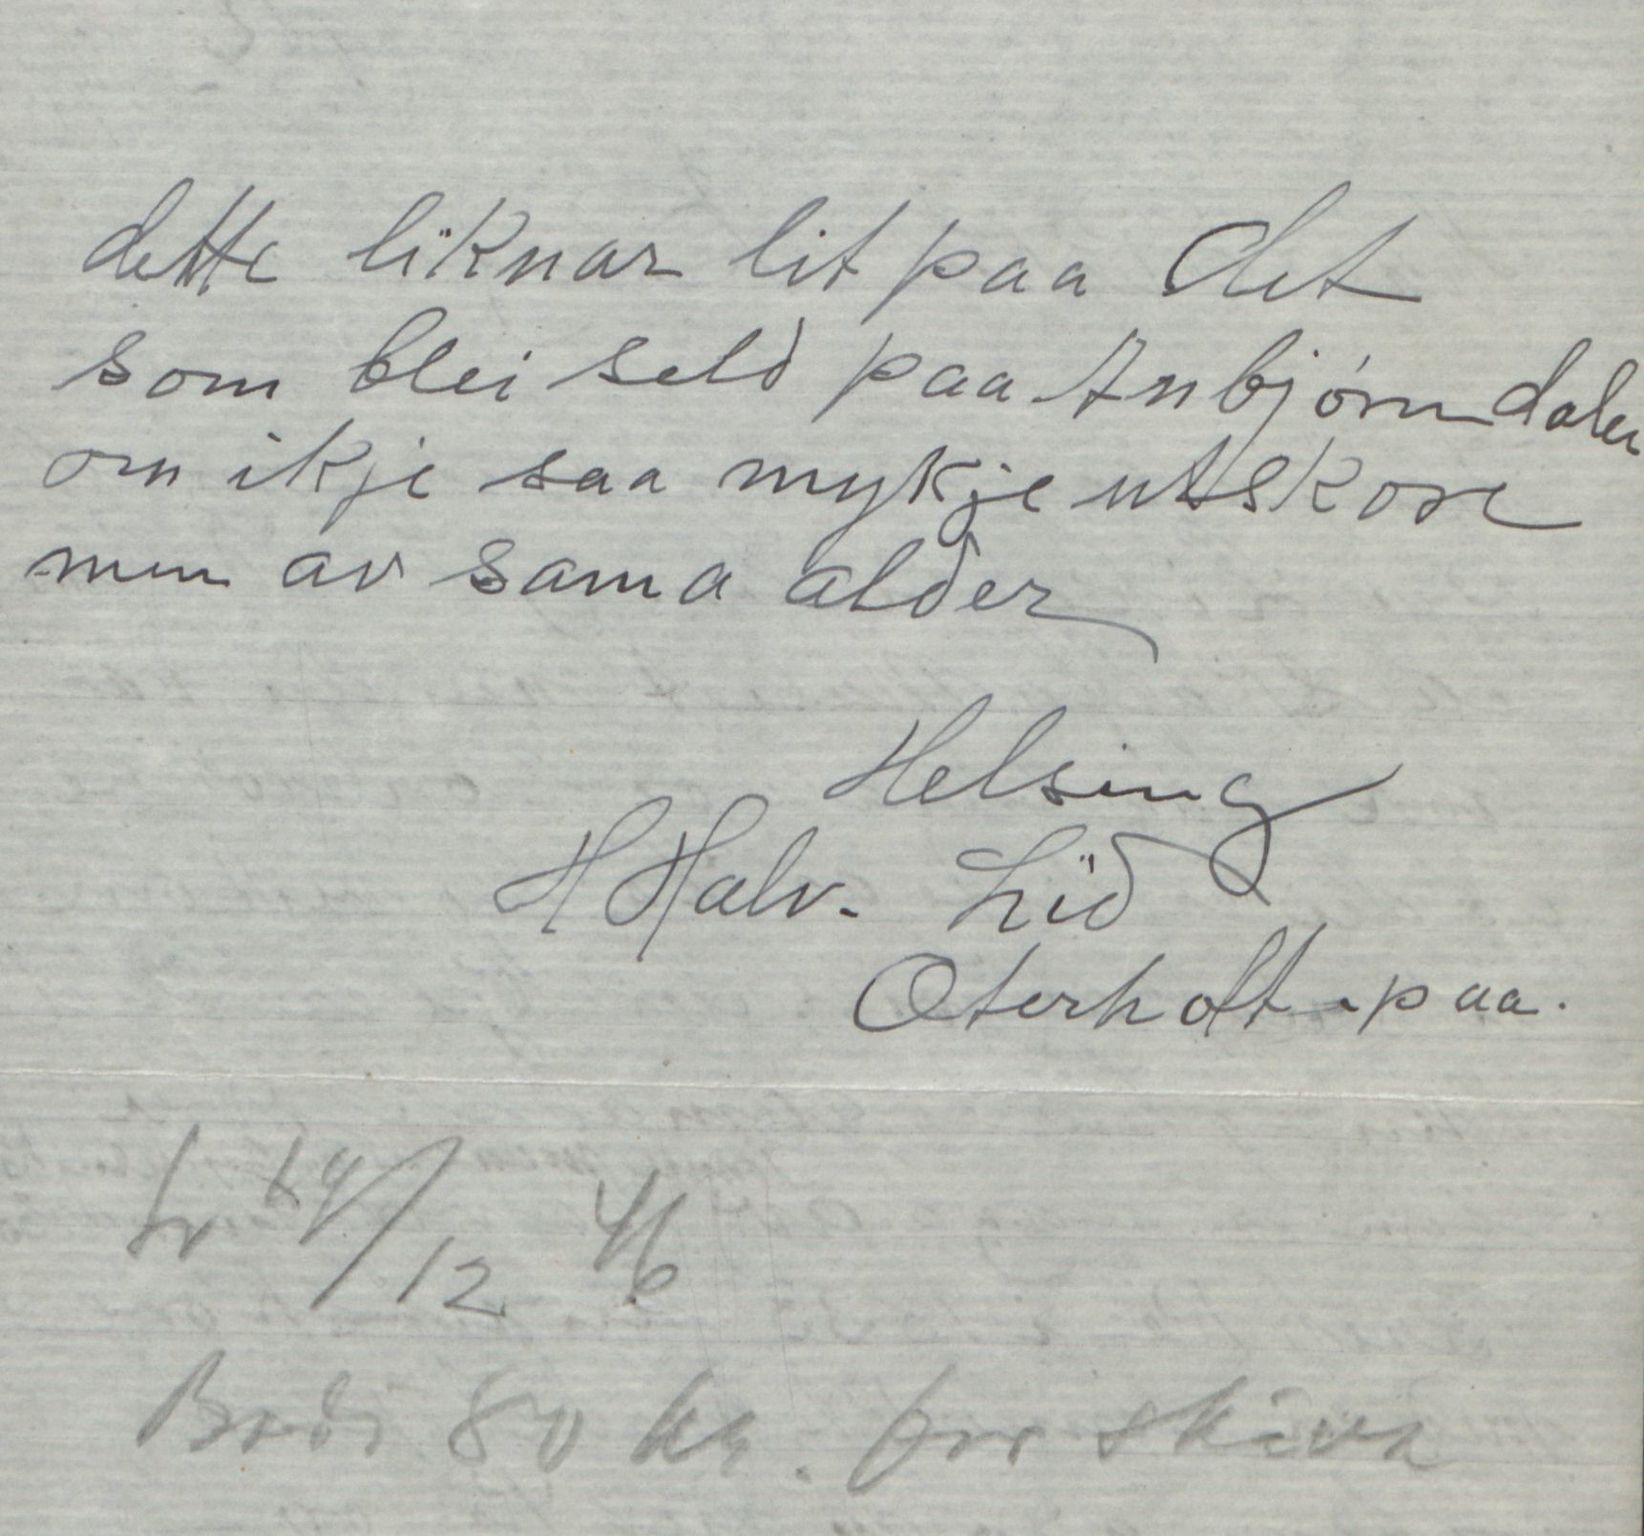 dette liknar lit paa det
som blei seld paa Anbjørndalen
om ikje saa mykje utskore
men av sama alder
Helsing
H Halv. Lid
Oterholt - paa.
sv 29/12 46
Bodi 80 kr. for skiva